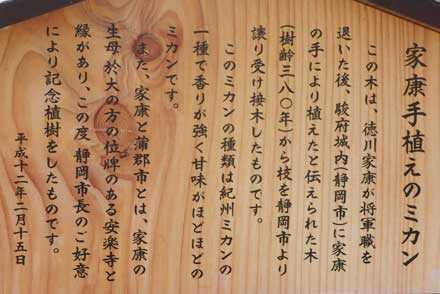 家康手植えのミカン
この木は、徳川家康が将軍職を
退いた後、駿府城内(静岡市)に家康
の手により植えたと伝えられた木
(樹齢三八〇年)から枝を静岡市より
譲り受け接木したものです。
このミカンの種類は紀州ミカンの
一種で香りが強く甘味がほどほどの
ミカンです。
また、家康と蒲郡市とは、家康の
生母於大の方の位牌のある安楽寺と
縁があり、この度静岡市長のご好意
により記念植樹をしたものです。
平成十二年二月十五日